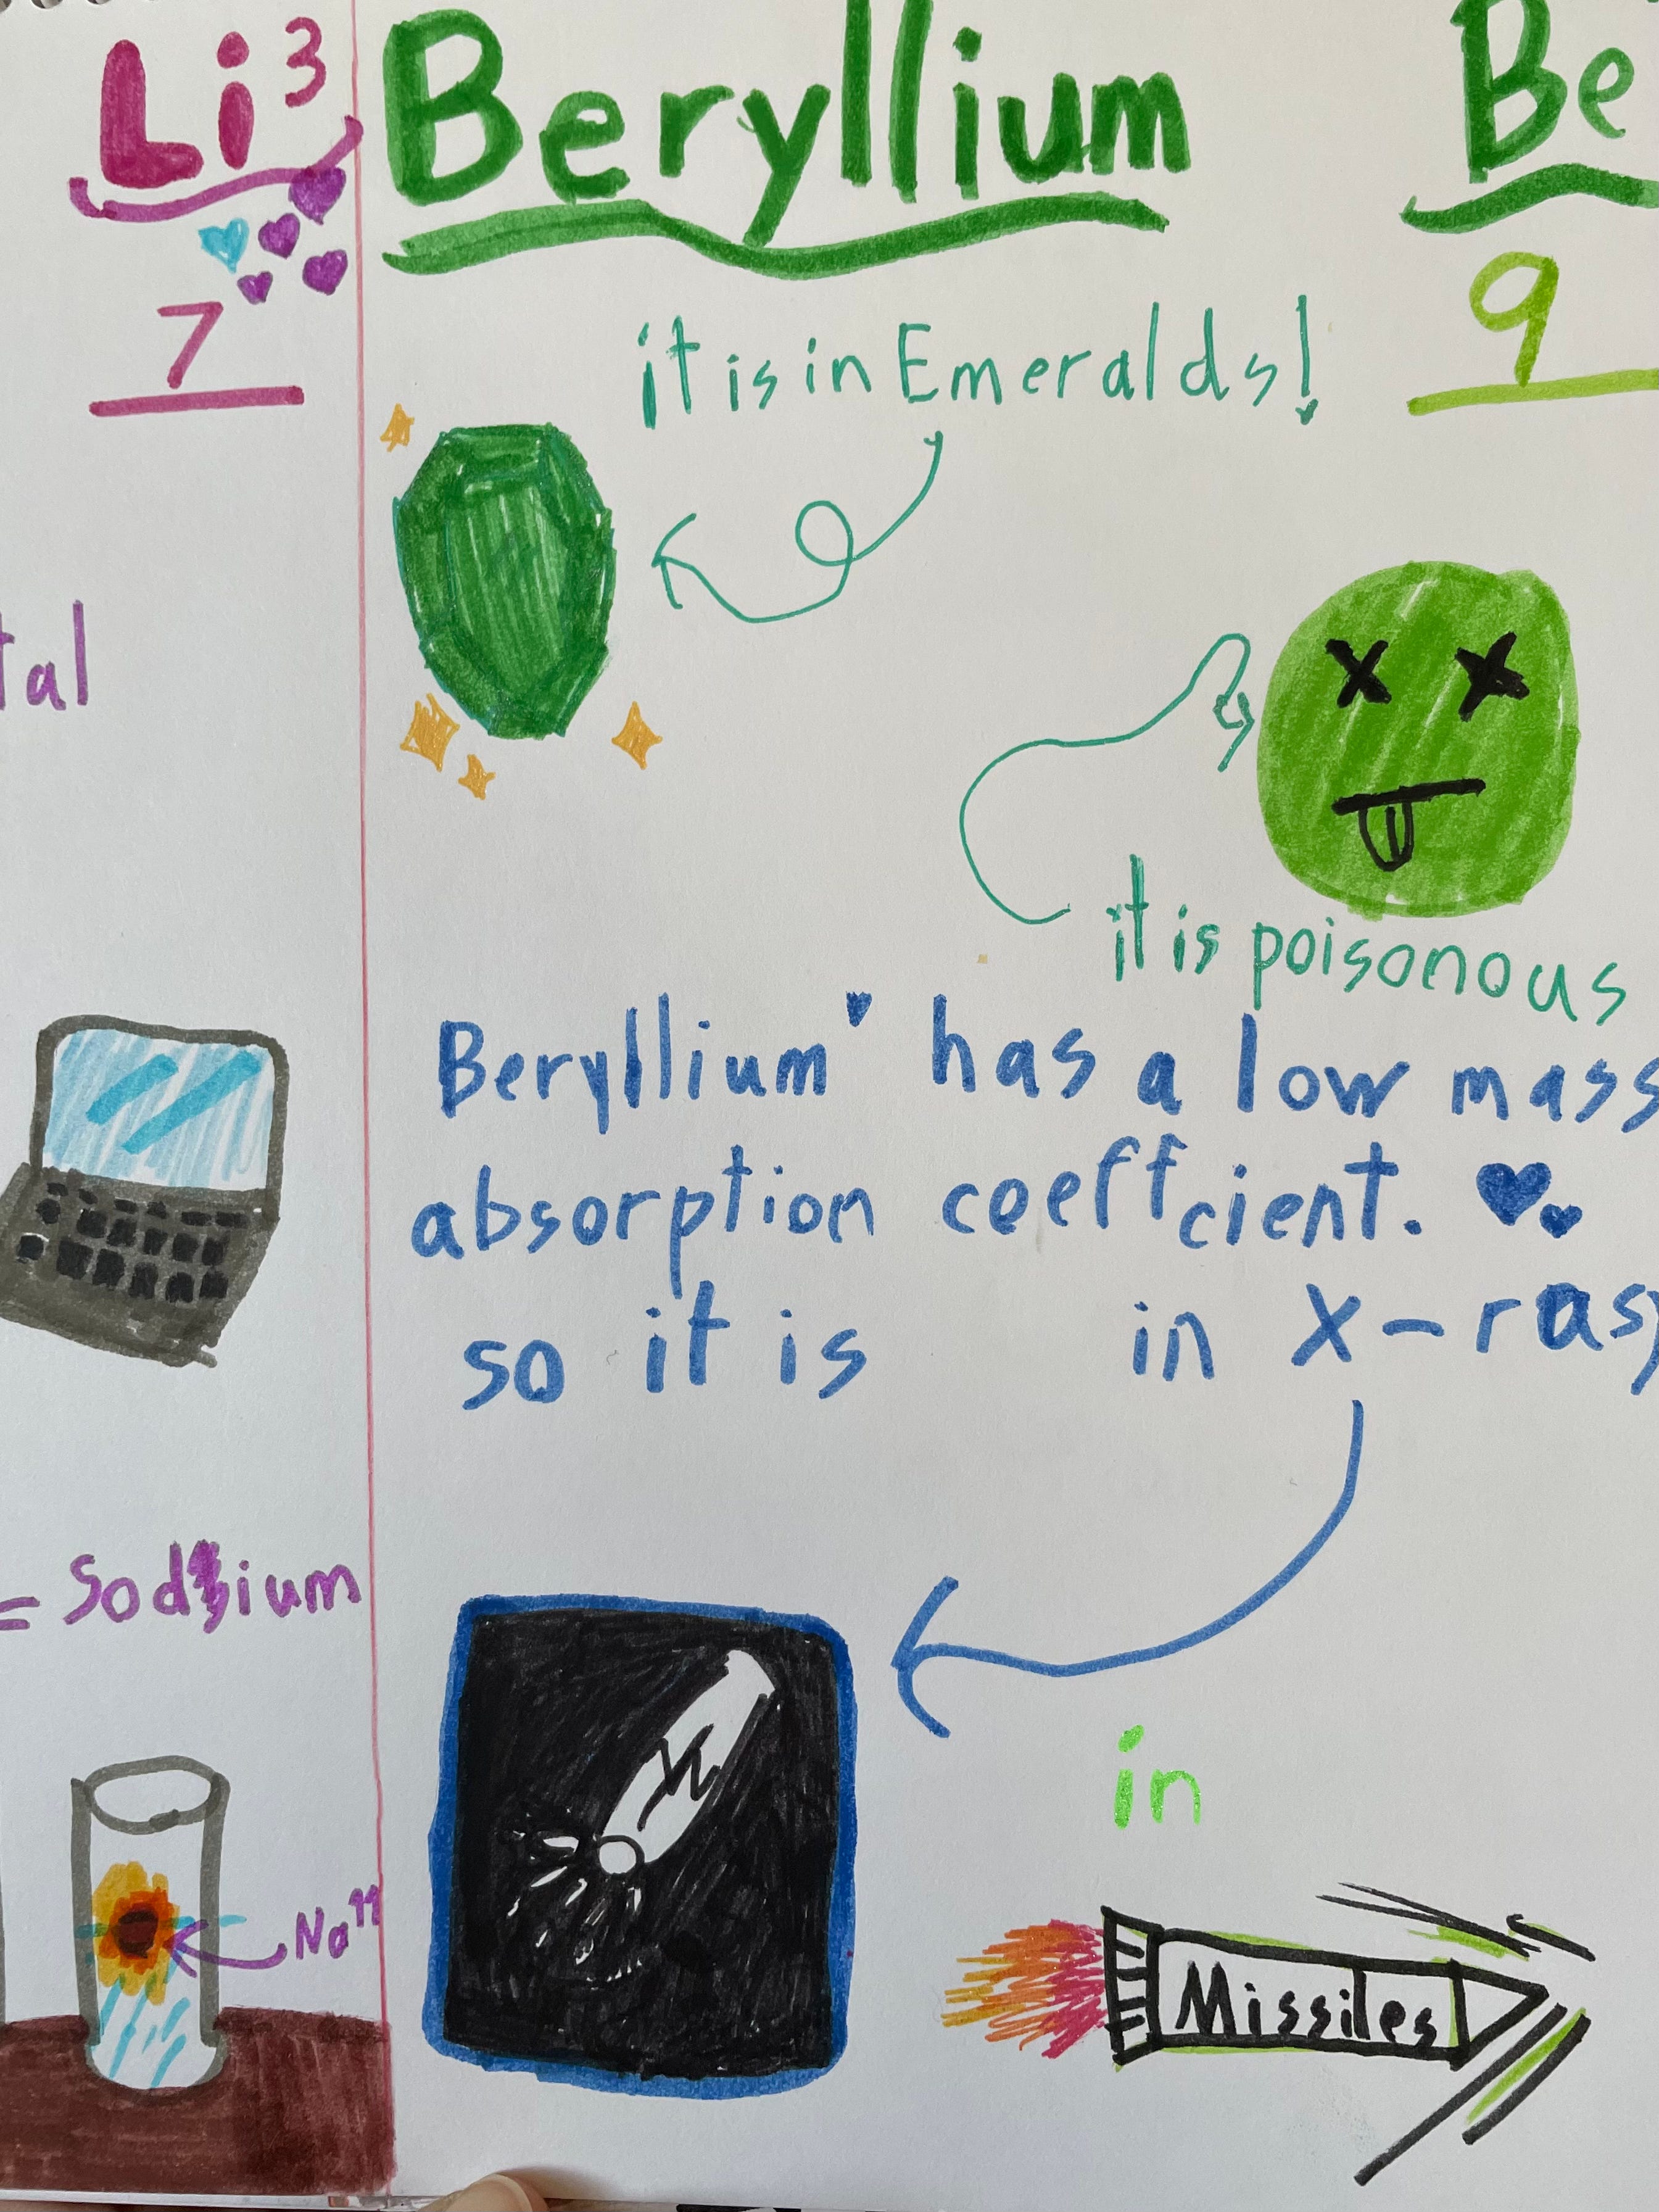 Li 3
7
tal
= Sodium
Na 11
Beryllium
Be
9
it is in Emeralds!
it is poisonous
Beryllium has a low mass
absorption coeffcient.
so it is in X-rasy
in
Missiles